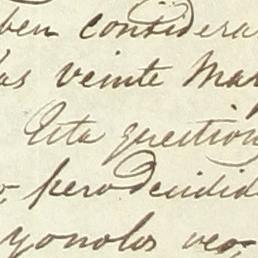 ben considera
las veinte Mar
Esta question
pero decidid
yonolos veo